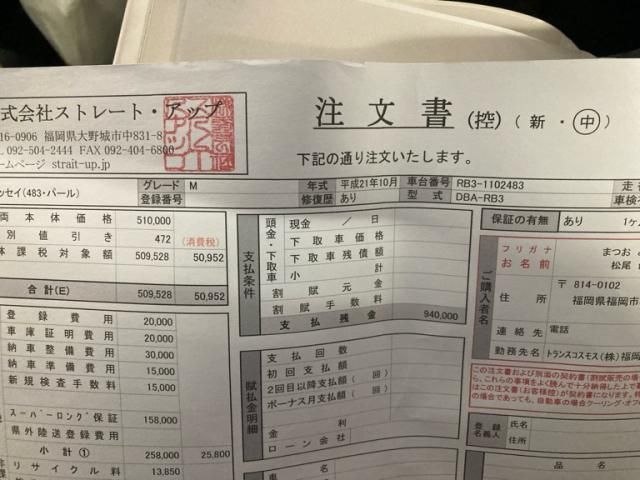 式会社ストレート・アップ
816-0906 福岡県大野城市中831-8
092-504-2444 FAX 092-404-6800
ームページ strait-up.jp
注文書(控)(新・中)
下記の通り注文いたします。
ッセイ(483・パール) グレード M 年式 平成21年10月 車台番号 RB3-1102483
登録番号 修復歴 あり 型式 DBA-RB3 車検
両本体価格 510,000
別値引き 472 (消費税)
課税対象額 509,528 50,952
合計(E) 509,528 50,952
登録費用 20,000
車庫証明費用 20,000
納車整備費用 30,000
納車準備費用 15,000
新規検査手数料 15,000
スーパーロング保証 158,000
県外陸送登録費用
小計① 258,000 25,800
リサイクル料 13,850
支払条件
頭金・下取車
現金 / 日
下取車価格
下取車残債額
小計
割賦元金
割賦手数料
支払残金 940,000
賦払金明細
支払回数
初回支払額
2回目以降支払額(回)
ボーナス月支払額(回)
金利
ローン会社
車名
保証の有無 あり 1ヶ
ご購入者名
フリガナ まつお
お名前 松尾
住所 〒814-0102
福岡県福岡市
連絡先 電話
勤務先名 トランスコスモス(株)福岡
登録名義人 氏名
住所
品名